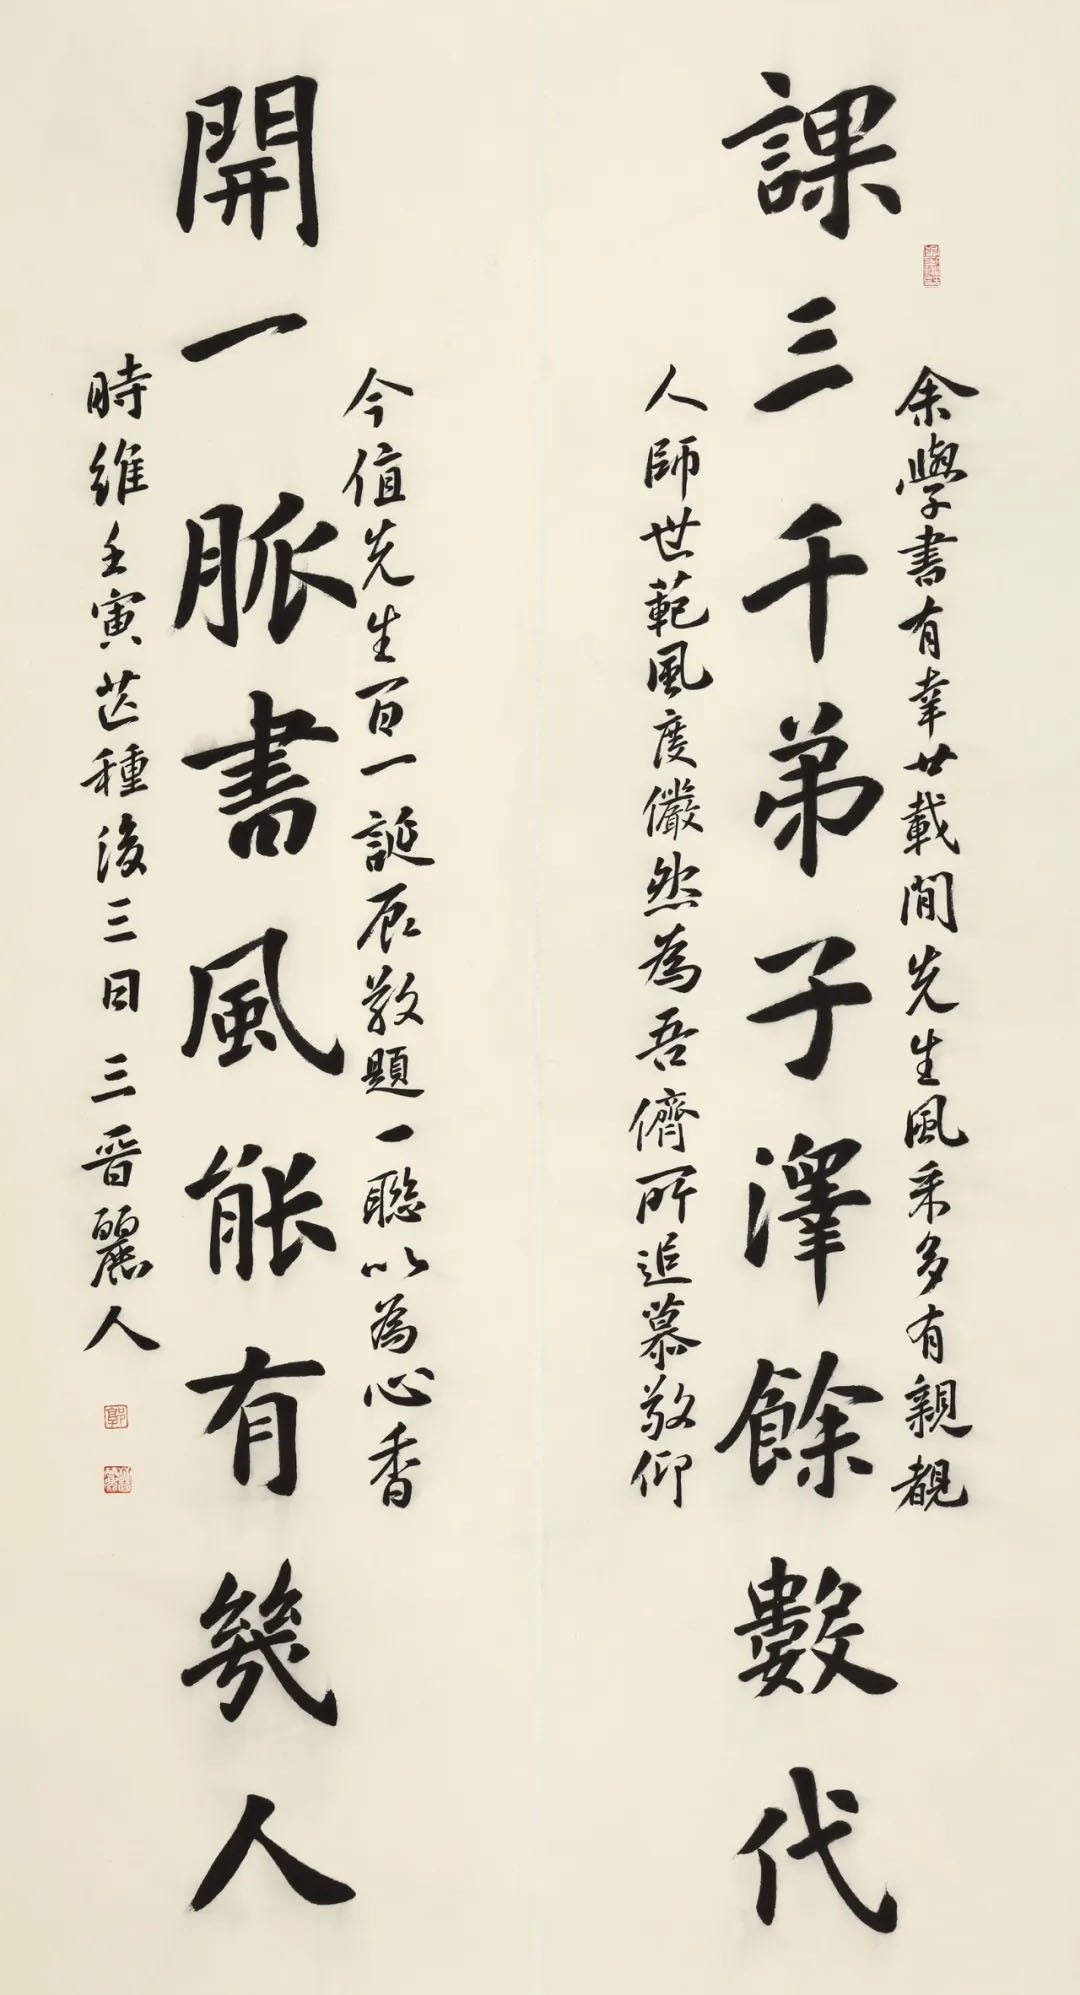 課三千弟子澤餘數代
余學書有幸廿載間先生風采多有親覩
人師世範風度儼然為吾儕所追慕敬仰
開一脈書風能有幾人
今值先生百一誕辰敬題一聯以為心香
時維壬寅芒種後三日三晉麗人